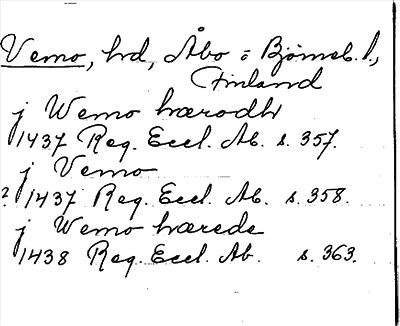 Vemo, hd, Åbo o Björneb. l.,
Finland
j Wemo hærodh
1437 Reg. Eccl. Ab. s. 357.
j Vemo
? 1437 Reg. Eccl. Ab. s. 358.
j Wemo hærede
1438 Reg. Eccl. Ab. s. 363.